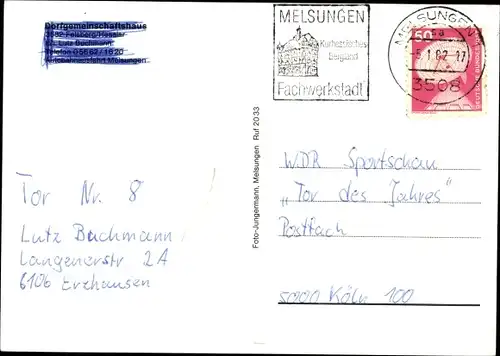 Dorfgemeinschaftshaus
3582 Felsberg/Hessler
Lutz Bachmann
Telefon 05662/1620
Autobahnausfahrt Melsungen
MELSUNGEN
Kurhessisches
Bergland
Fachwerkstadt
MELSUNGEN 1
-5.1.82-17
3508
50
Tor Nr. 8
Lutz Bachmann
Langenerstr 2A
6106 Erzhausen
Foto-Jungermann, Melsungen Ruf 2033
WDR Sportschau
„Tor des Jahres"
Postfach
5000 Köln 100